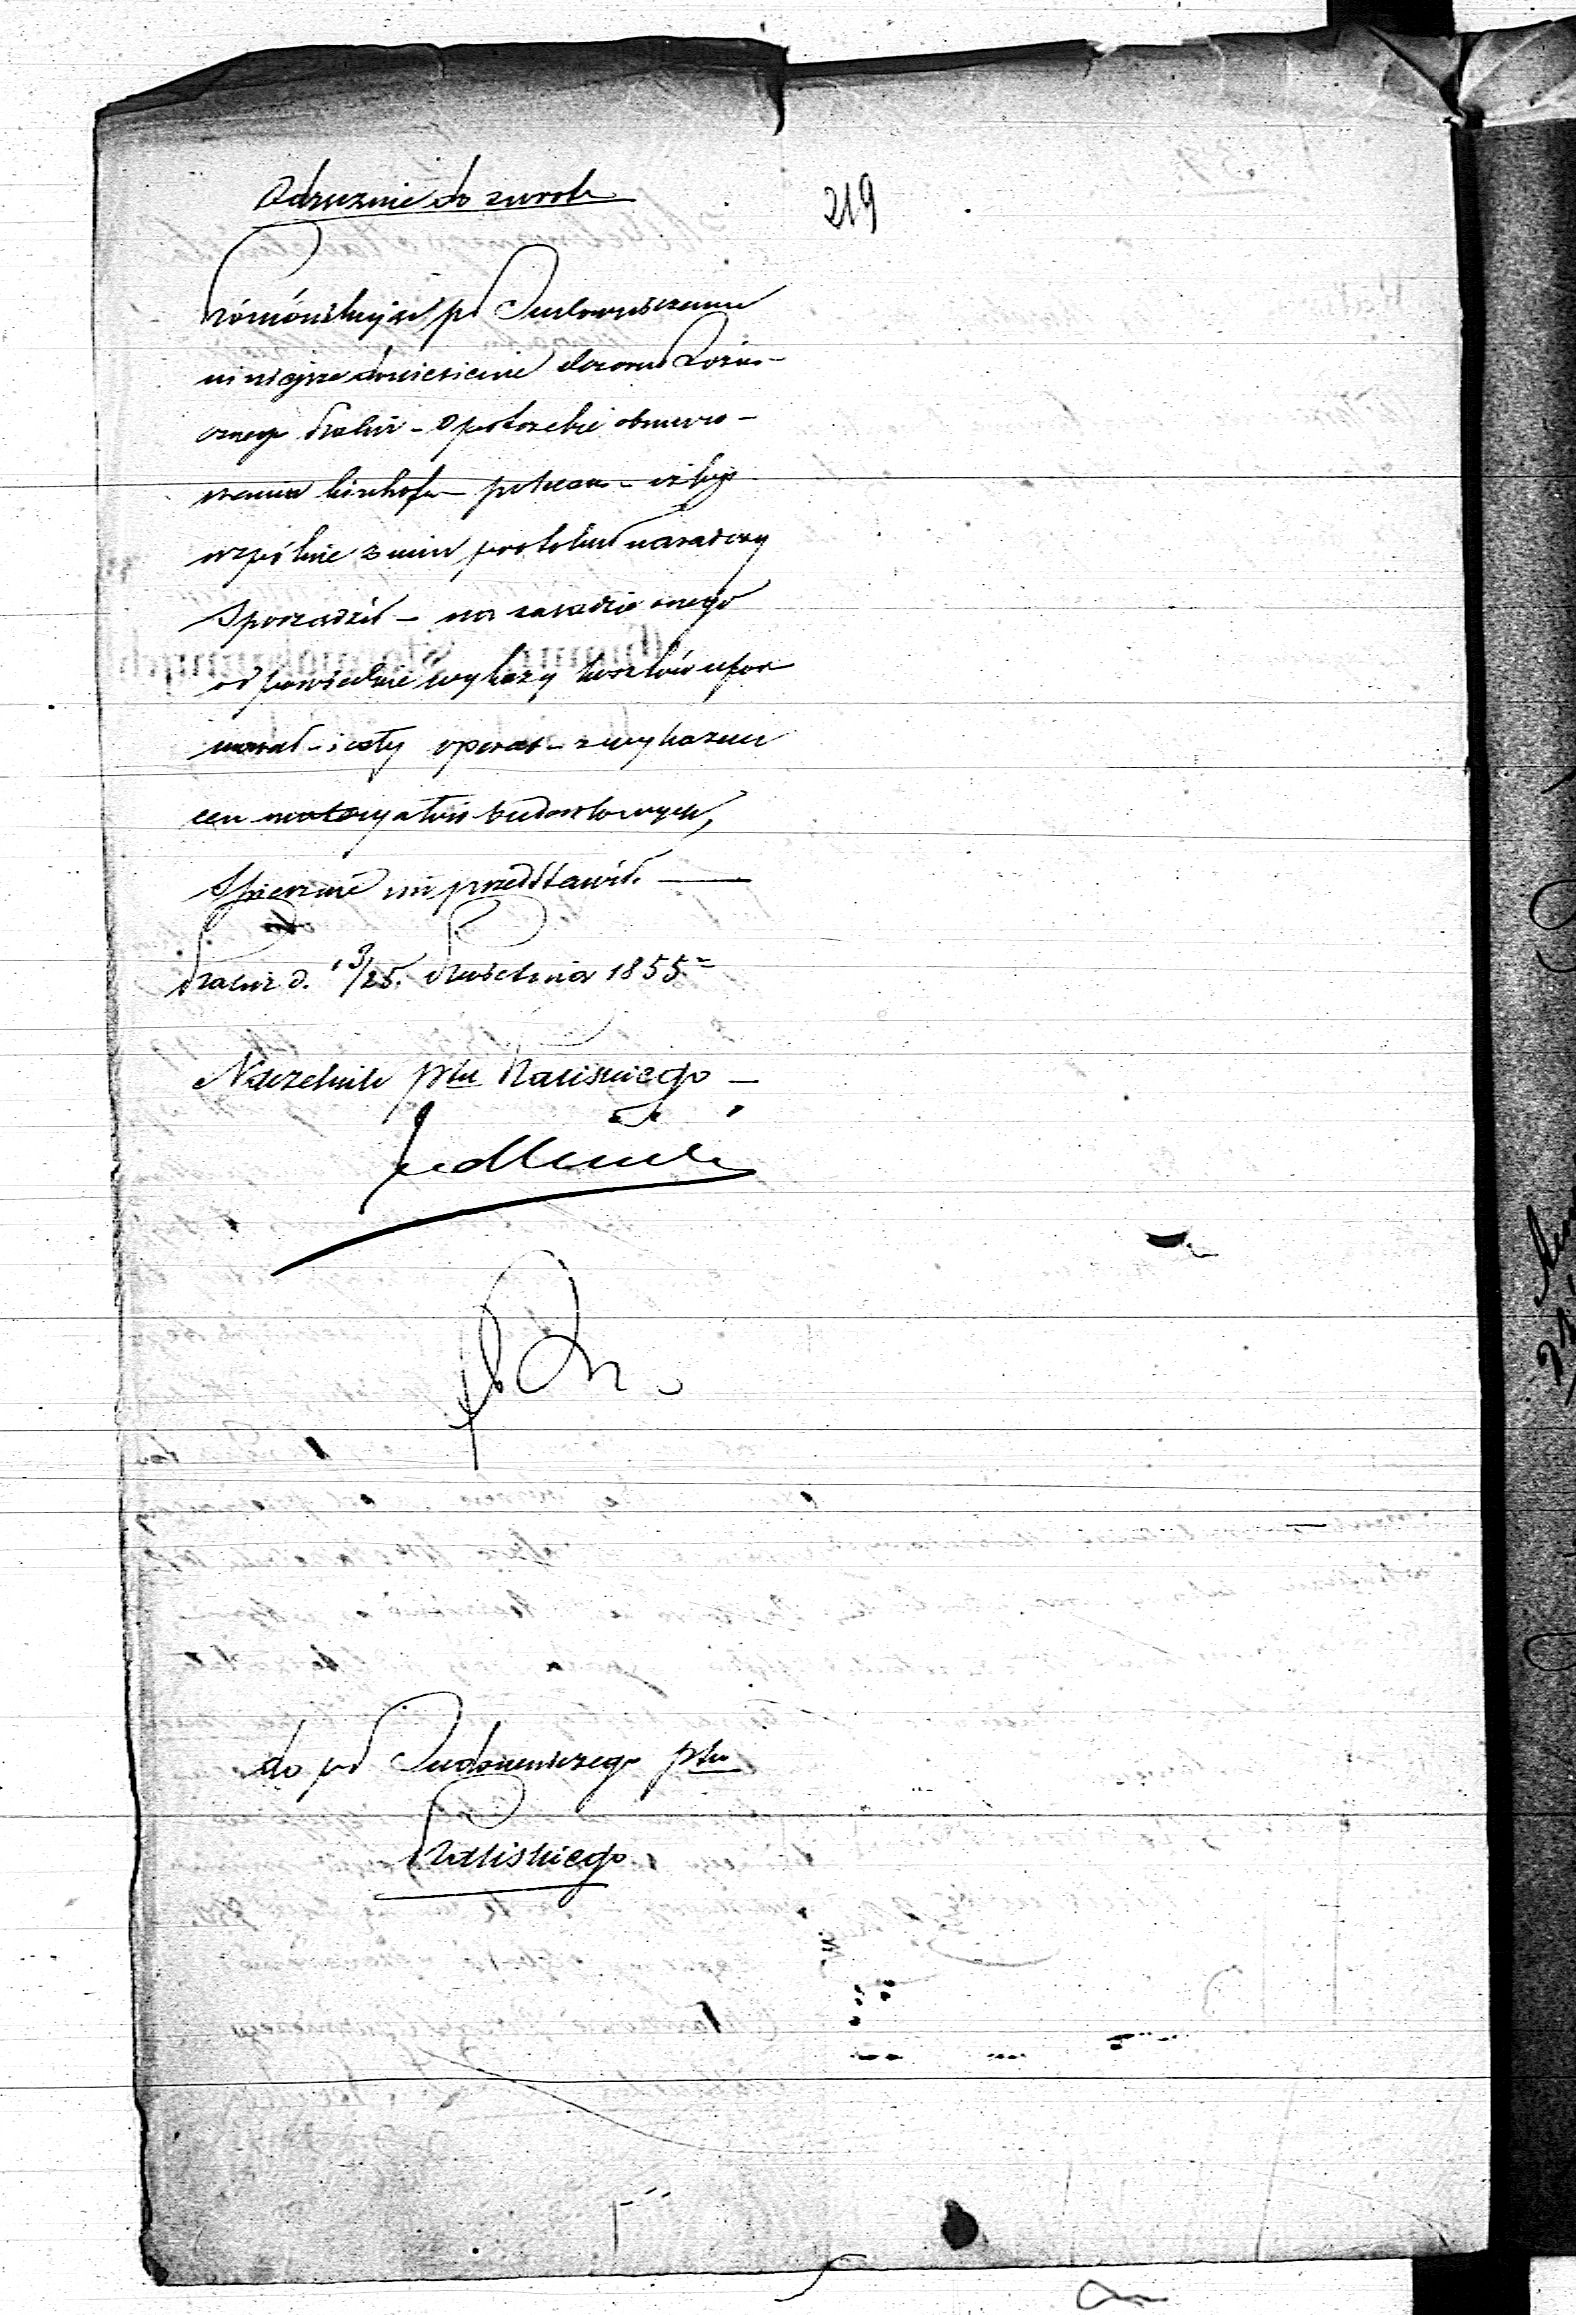 Odręcznie do zwrotu
219
Komónikując p Budowniczemu
niniejsze doniesienie dozoru Bożni-
cznego Kalisz - o potrzebie obmuro-
wania kirchofu - polecam - ażeby
wspólnie z nim protokuł naradczy
sporządził - na zasadzie onego
odpowiednie wykazy kosztów ufor
mował - i cały operat - z wykazem
cen materyałów budowlanych,
śpiesznie mi przedstawił.
Kalisz d. 13/25. Kwietnia 1855
Naczelnik Ptu Kaliskiego
do p Budowniczego Ptu
Kaliskiego